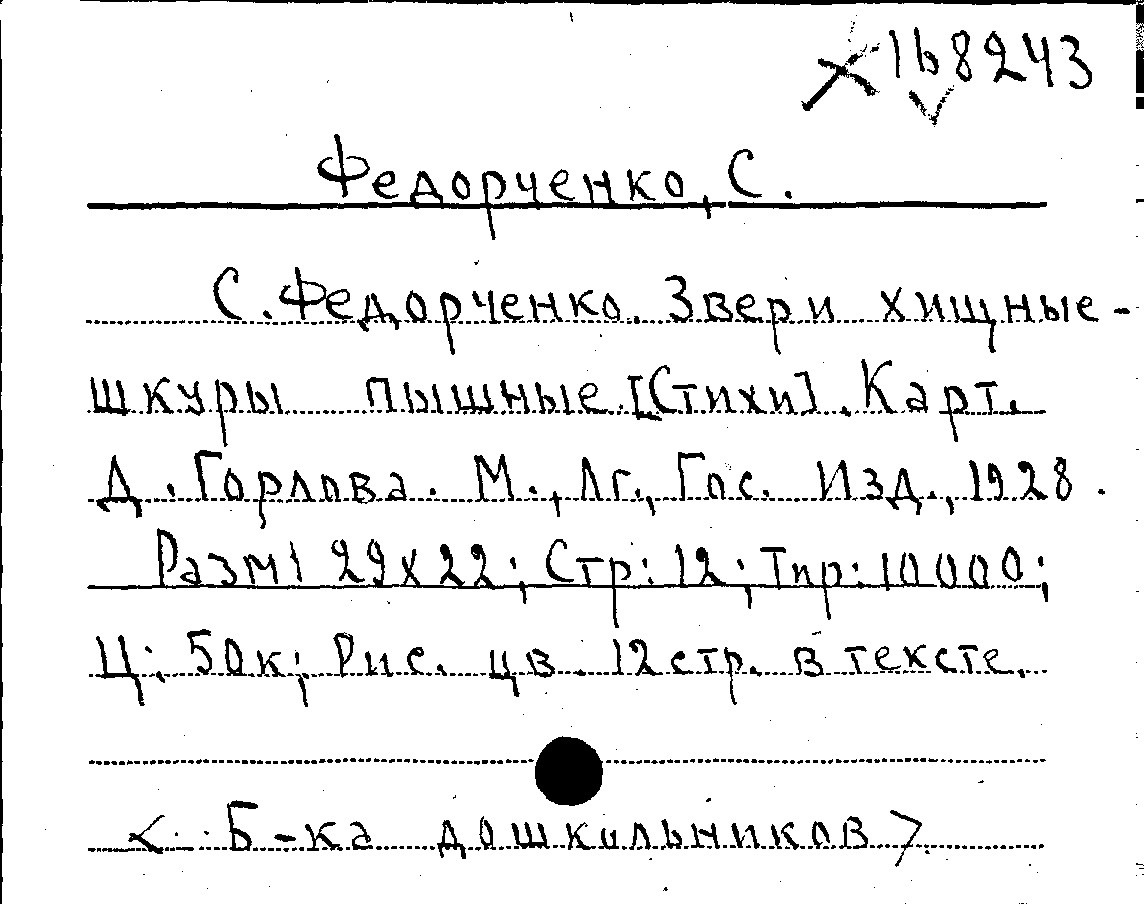 168243
Федорченко, С.
С. Федорченко. Звери хищные-
шкуры пышные. [Стихи]. Карт.
Д. Горлова. М., Лг., Гос. Изд., 1928.
Разм: 29х22; Стр: 12; Тир: 10000;
Ц: 50к; Рис. цв. 12 стр. в тексте.
<Б-ка дошкольников>